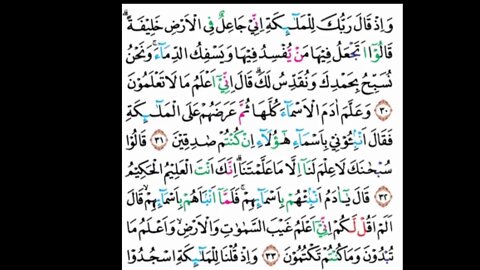 وَاِذْ قَالَ رَبُّكَ لِلْمَلٰۤىِٕكَةِ اِنِّيْ جَاعِلٌ فِى الْاَرْضِ خَلِيْفَةً ۗ
قَالُوْٓا اَتَجْعَلُ فِيْهَا مَنْ يُّفْسِدُ فِيْهَا وَيَسْفِكُ الدِّمَاۤءَۚ وَنَحْنُ
نُسَبِّحُ بِحَمْدِكَ وَنُقَدِّسُ لَكَ ۗ قَالَ اِنِّيْٓ اَعْلَمُ مَا لَا تَعْلَمُوْنَ
٣٠ وَعَلَّمَ اٰدَمَ الْاَسْمَاۤءَ كُلَّهَا ثُمَّ عَرَضَهُمْ عَلَى الْمَلٰۤىِٕكَةِ
فَقَالَ اَنْۢبِـُٔوْنِيْ بِاَسْمَاۤءِ هٰٓؤُلَاۤءِ اِنْ كُنْتُمْ صٰدِقِيْنَ ٣١ قَالُوْا
سُبْحٰنَكَ لَا عِلْمَ لَنَآ اِلَّا مَا عَلَّمْتَنَا ۗاِنَّكَ اَنْتَ الْعَلِيْمُ الْحَكِيْمُ
٣٢ قَالَ يٰٓاٰدَمُ اَنْۢبِئْهُمْ بِاَسْمَاۤىِٕهِمْ ۚ فَلَمَّآ اَنْۢبَاَهُمْ بِاَسْمَاۤىِٕهِمْۙ قَالَ
اَلَمْ اَقُلْ لَّكُمْ اِنِّيْٓ اَعْلَمُ غَيْبَ السَّمٰوٰتِ وَالْاَرْضِۙ وَاَعْلَمُ مَا
تُبْدُوْنَ وَمَا كُنْتُمْ تَكْتُمُوْنَ ٣٣ وَاِذْ قُلْنَا لِلْمَلٰۤىِٕكَةِ اسْجُدُوْا